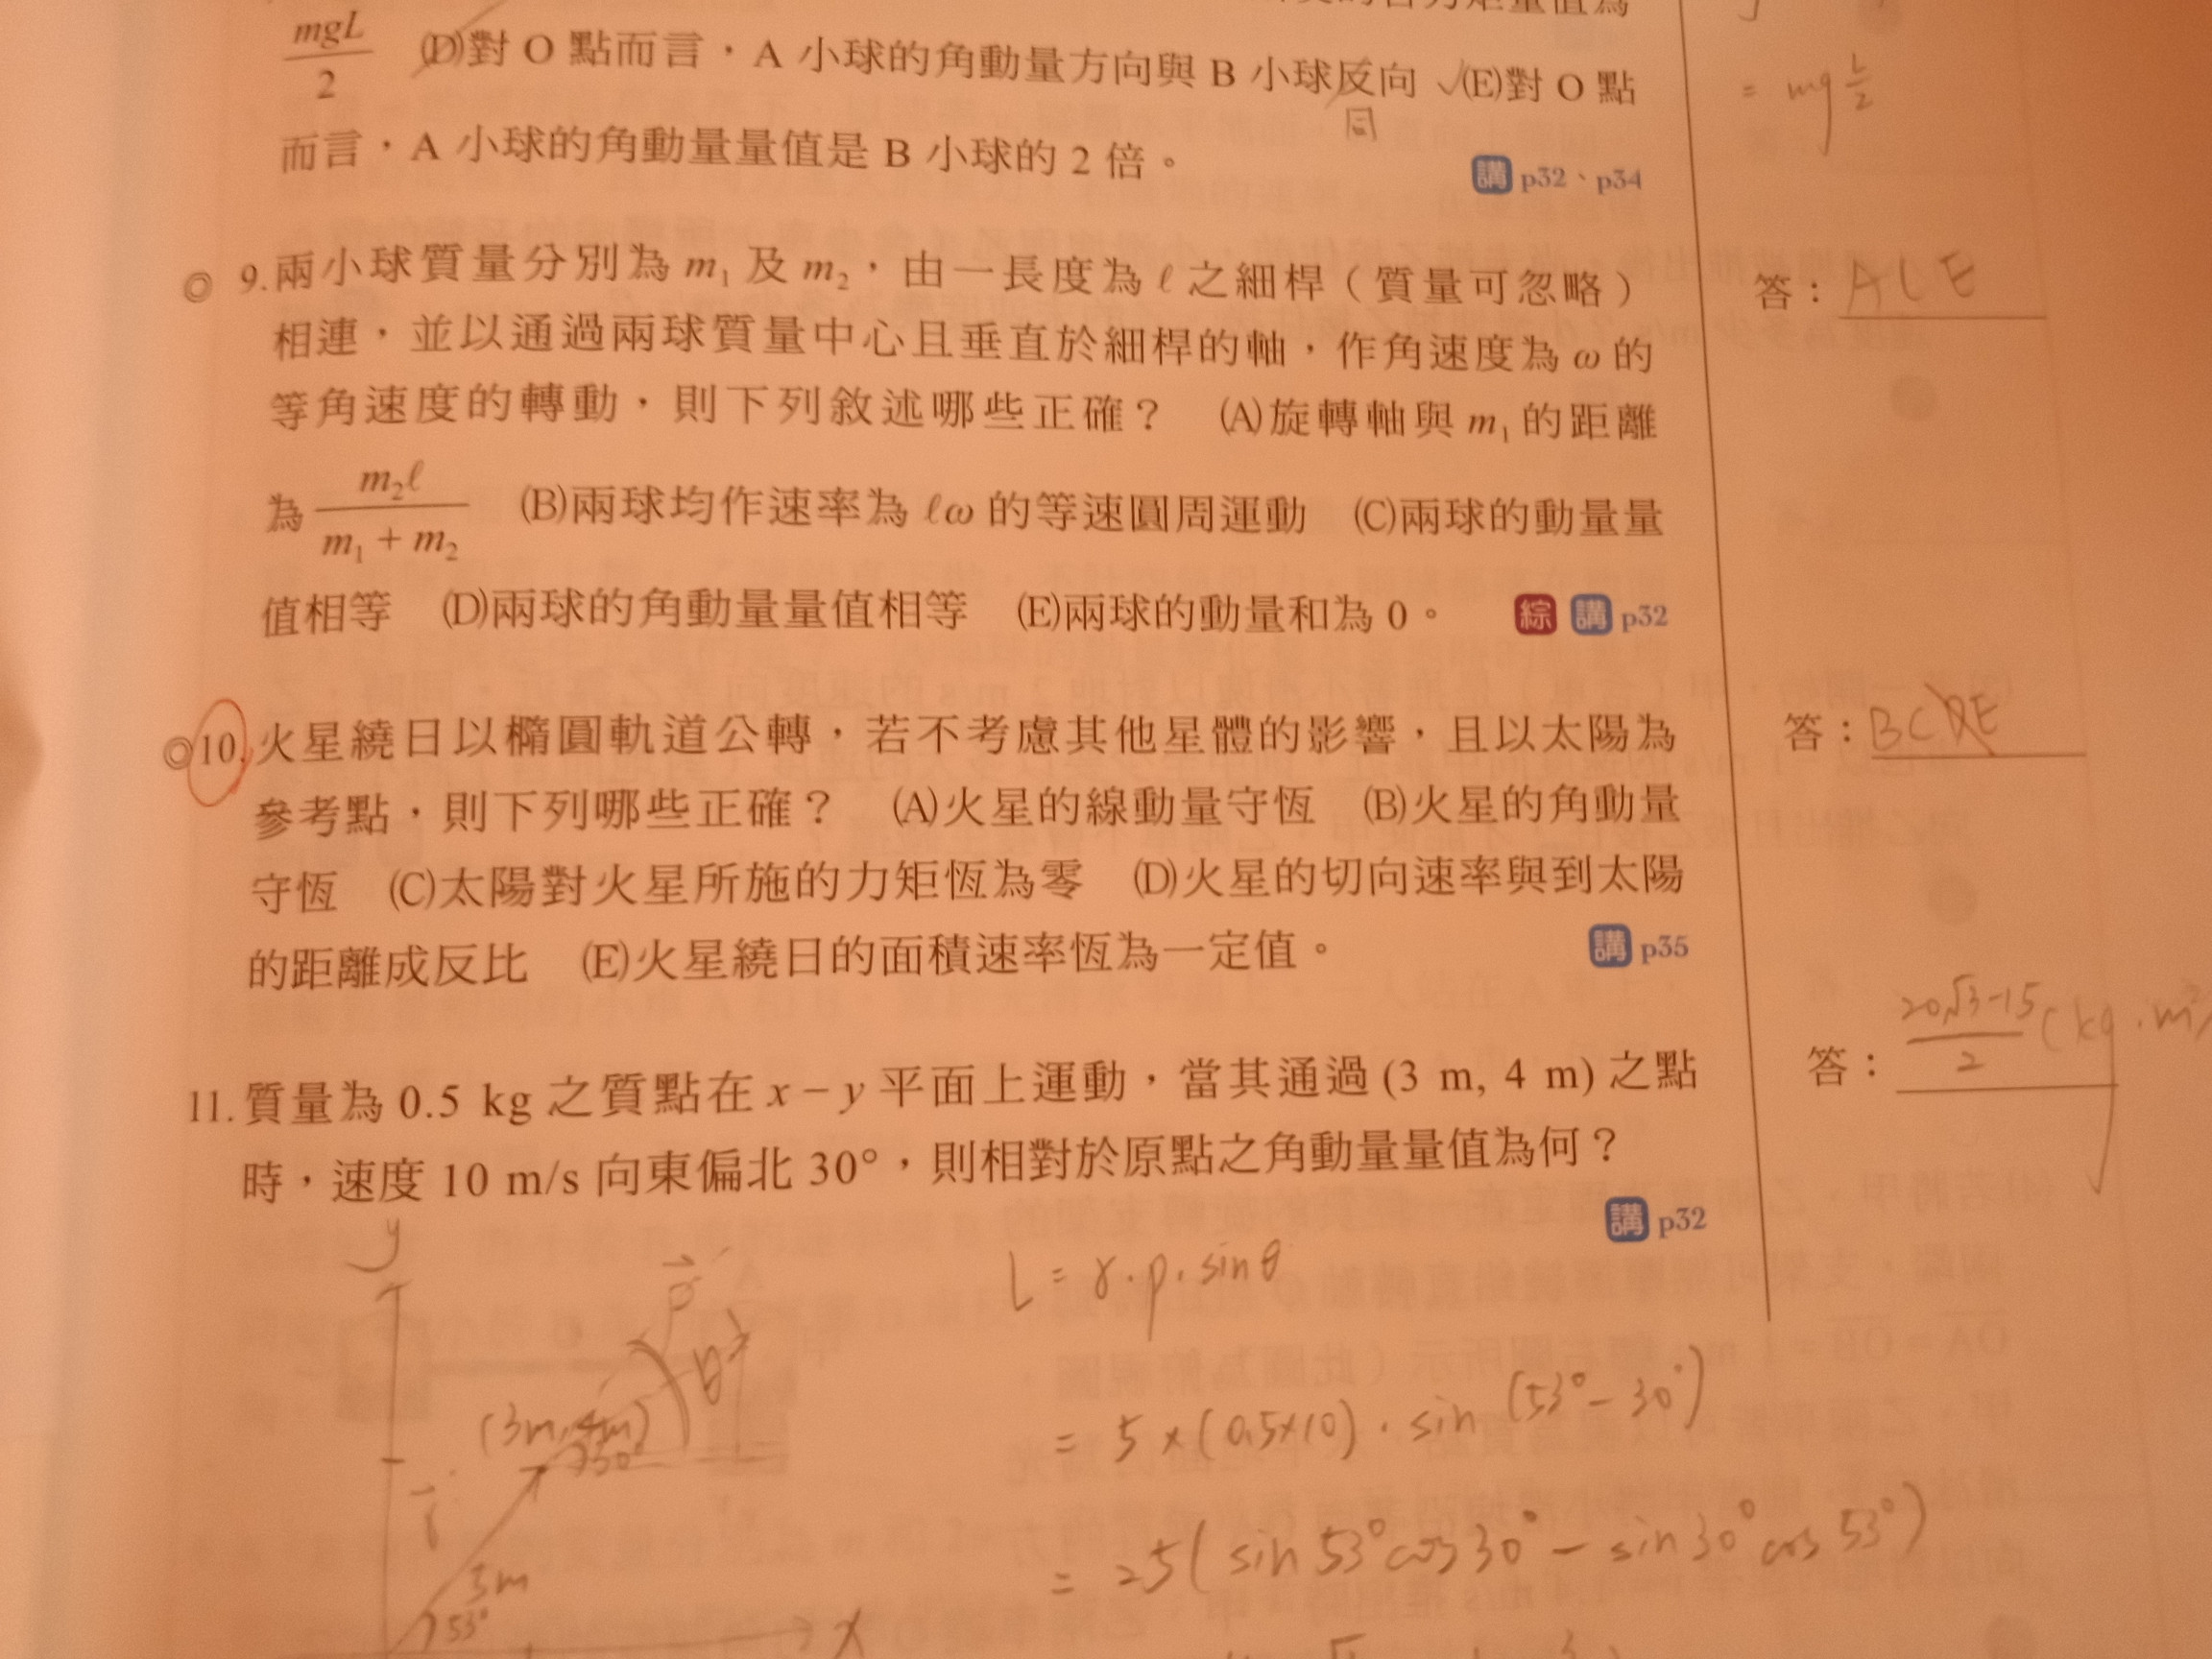 mgL/2 (D)對 O 點而言，A 小球的角動量方向與 B 小球反向 ✓(E)對 O 點
同
= mg L/2
而言，A 小球的角動量量值是 B 小球的 2 倍。
講 p32、p34
◎ 9. 兩小球質量分別為 m₁ 及 m₂，由一長度為 ℓ 之細桿（質量可忽略）
答：ACE
相連，並以通過兩球質量中心且垂直於細桿的軸，作角速度為 ω 的
等角速度的轉動，則下列敘述哪些正確？ (A)旋轉軸與 m₁ 的距離
為 m₂ℓ/(m₁ + m₂) (B)兩球均作速率為 ℓω 的等速圓周運動 (C)兩球的動量量
值相等 (D)兩球的角動量量值相等 (E)兩球的動量和為 0。 綜 講 p32
◎10. 火星繞日以橢圓軌道公轉，若不考慮其他星體的影響，且以太陽為
答：BCDE
參考點，則下列哪些正確？ (A)火星的線動量守恆 (B)火星的角動量
守恆 (C)太陽對火星所施的力矩恆為零 (D)火星的切向速率與到太陽
的距離成反比 (E)火星繞日的面積速率恆為一定值。 講 p35
11. 質量為 0.5 kg 之質點在 x－y 平面上運動，當其通過 (3 m, 4 m) 之點
答：(20√3-15)/2 (kg·m²/
時，速度 10 m/s 向東偏北 30°，則相對於原點之角動量量值為何？
講 p32
y
p
θ
(3m,4m)
30°
r
5m
53°
x
L = r·p·sinθ
= 5×(0.5×10)·sin(53°-30°)
= 25(sin53°cos30°-sin30°cos53°)